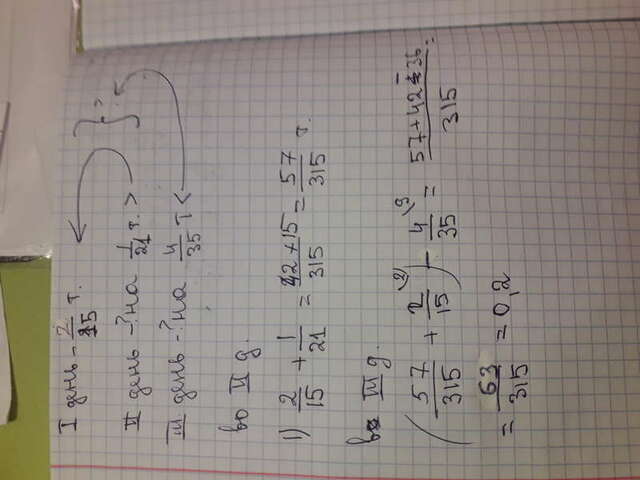 I день - 2/15 т.
II день - ? на 1/21 т. > } ?
III день - ? на 4/35 т <
во II д.
1) 2/15 + 1/21 = 42+15/315 = 57/315 т.
во III д.
(57/315 + 2/15) - 4/35 = 57+42-36/315 =
= 63/315 = 0,2